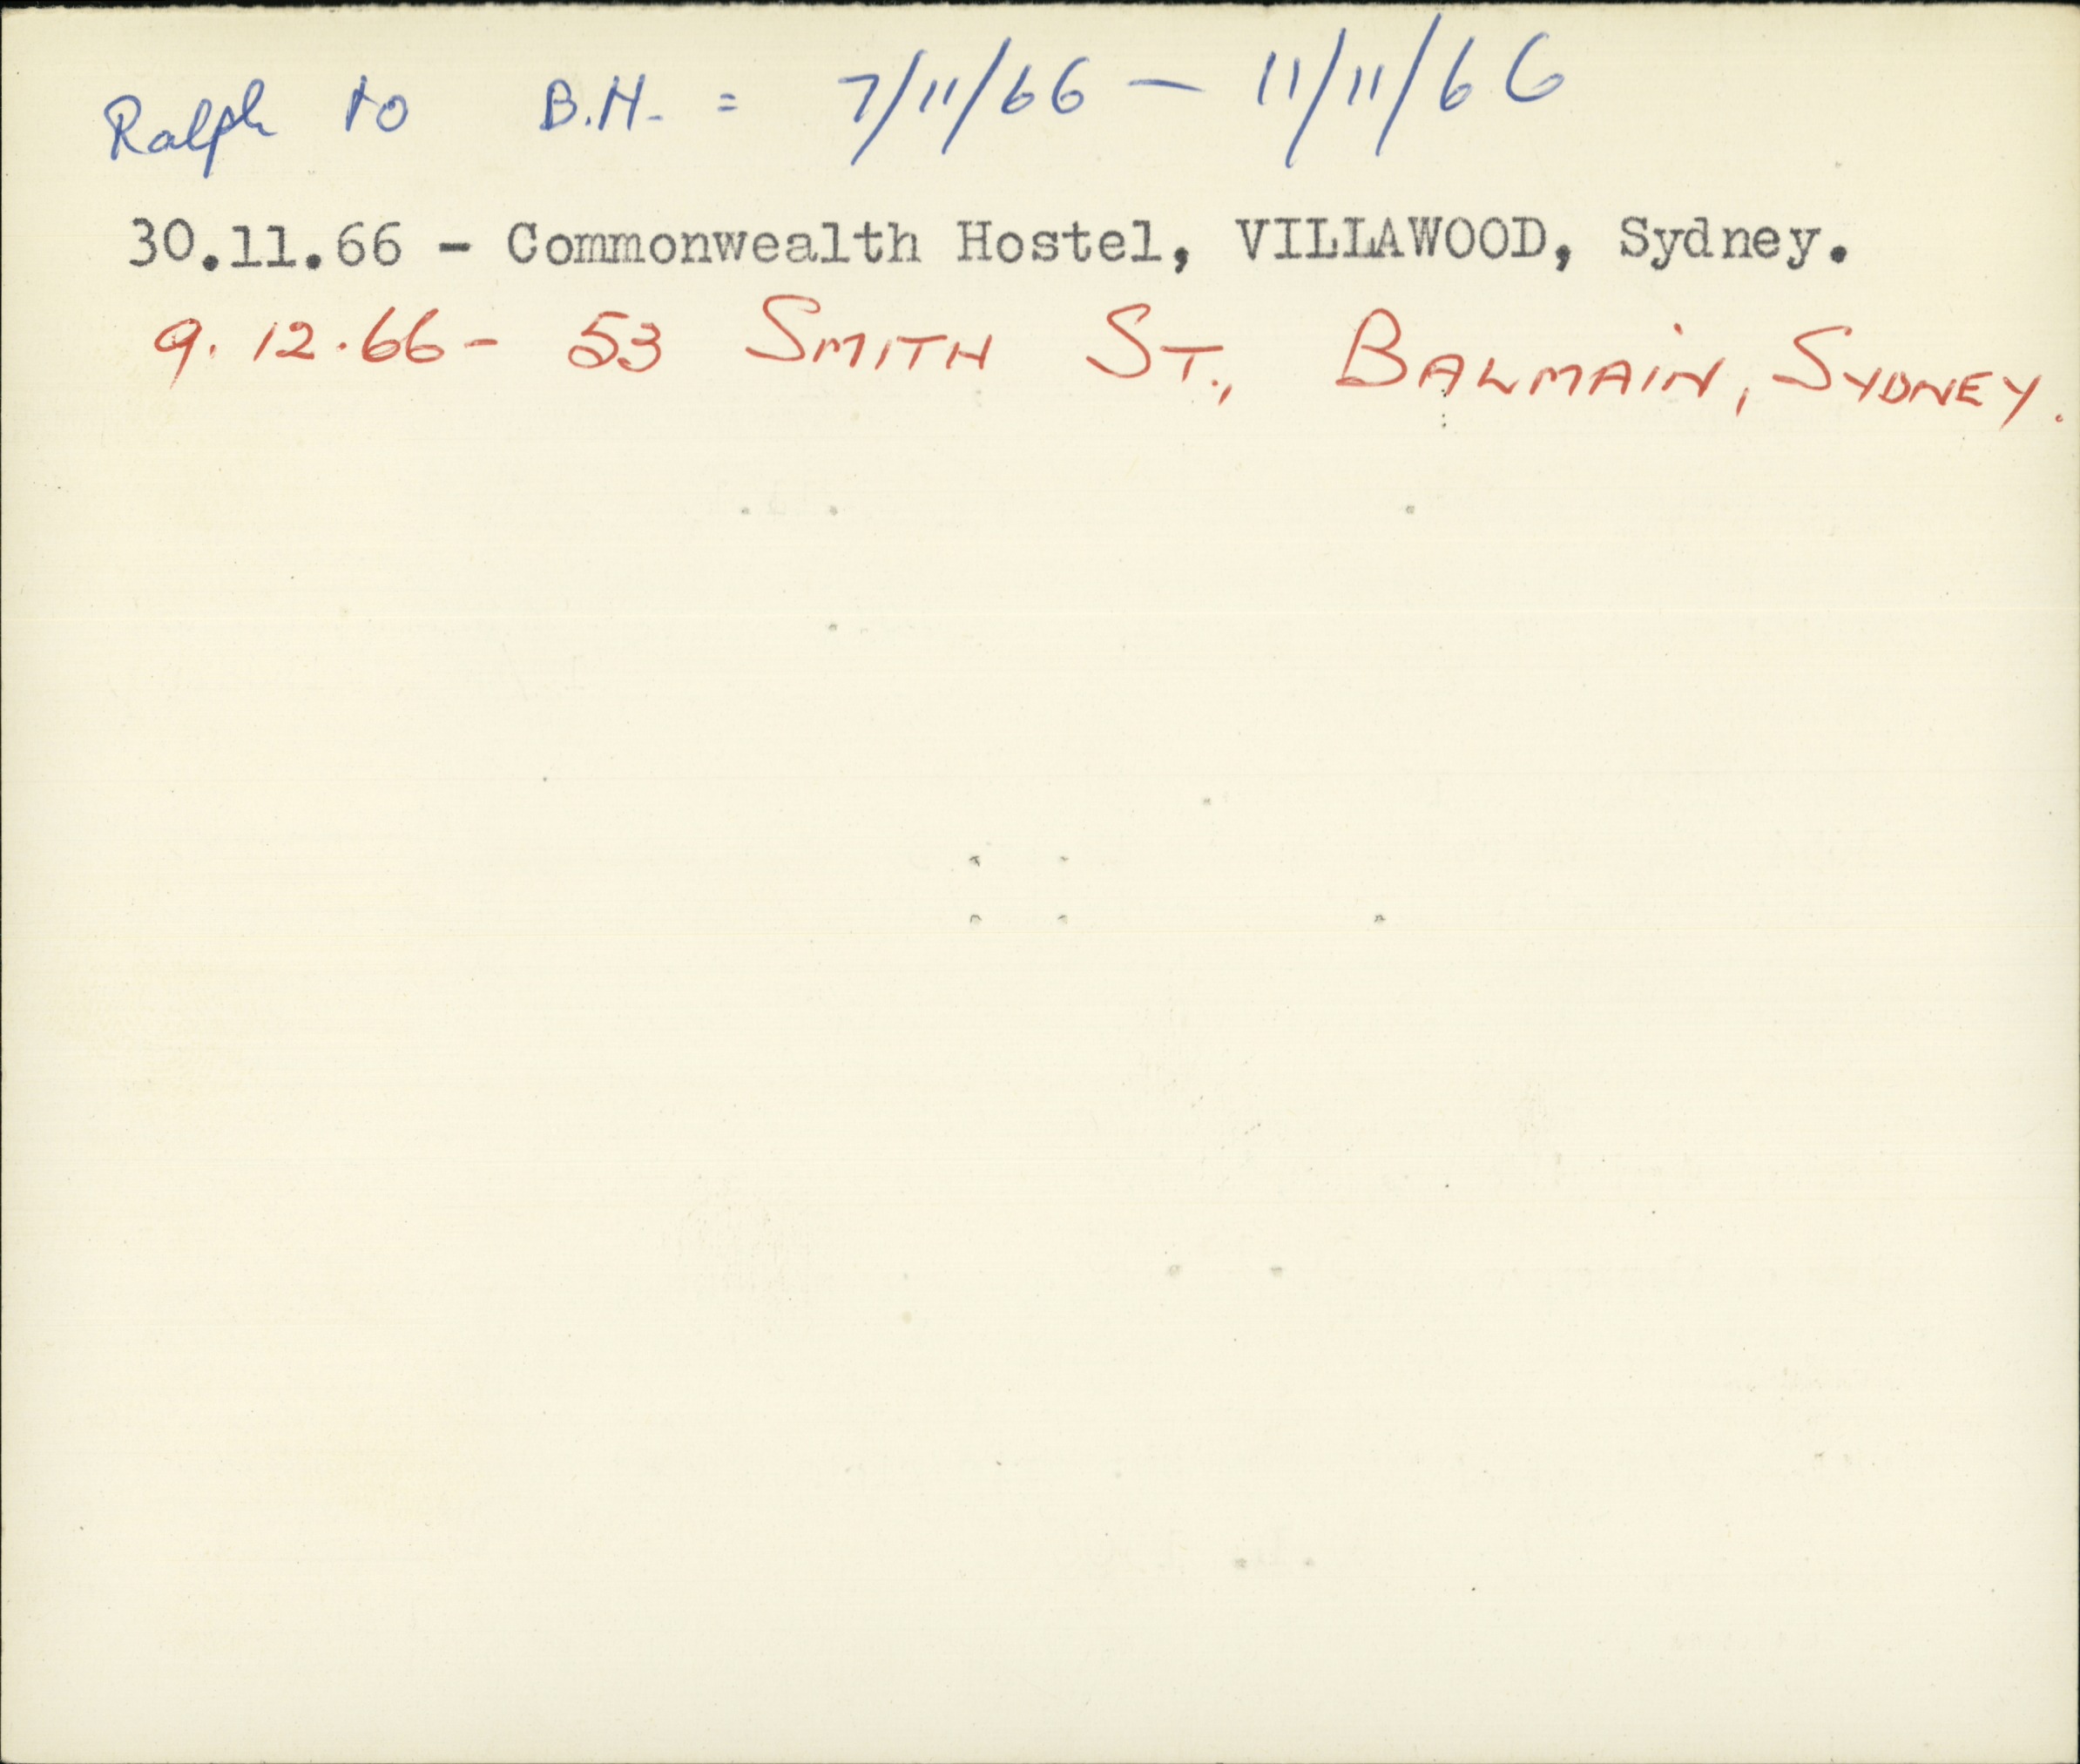 Ralph to B.H. = 7/11/66 — 11/11/66
30.11.66 - Commonwealth Hostel, VILLAWOOD, Sydney.
9.12.66 - 53 SMITH ST., BALMAIN, SYDNEY.